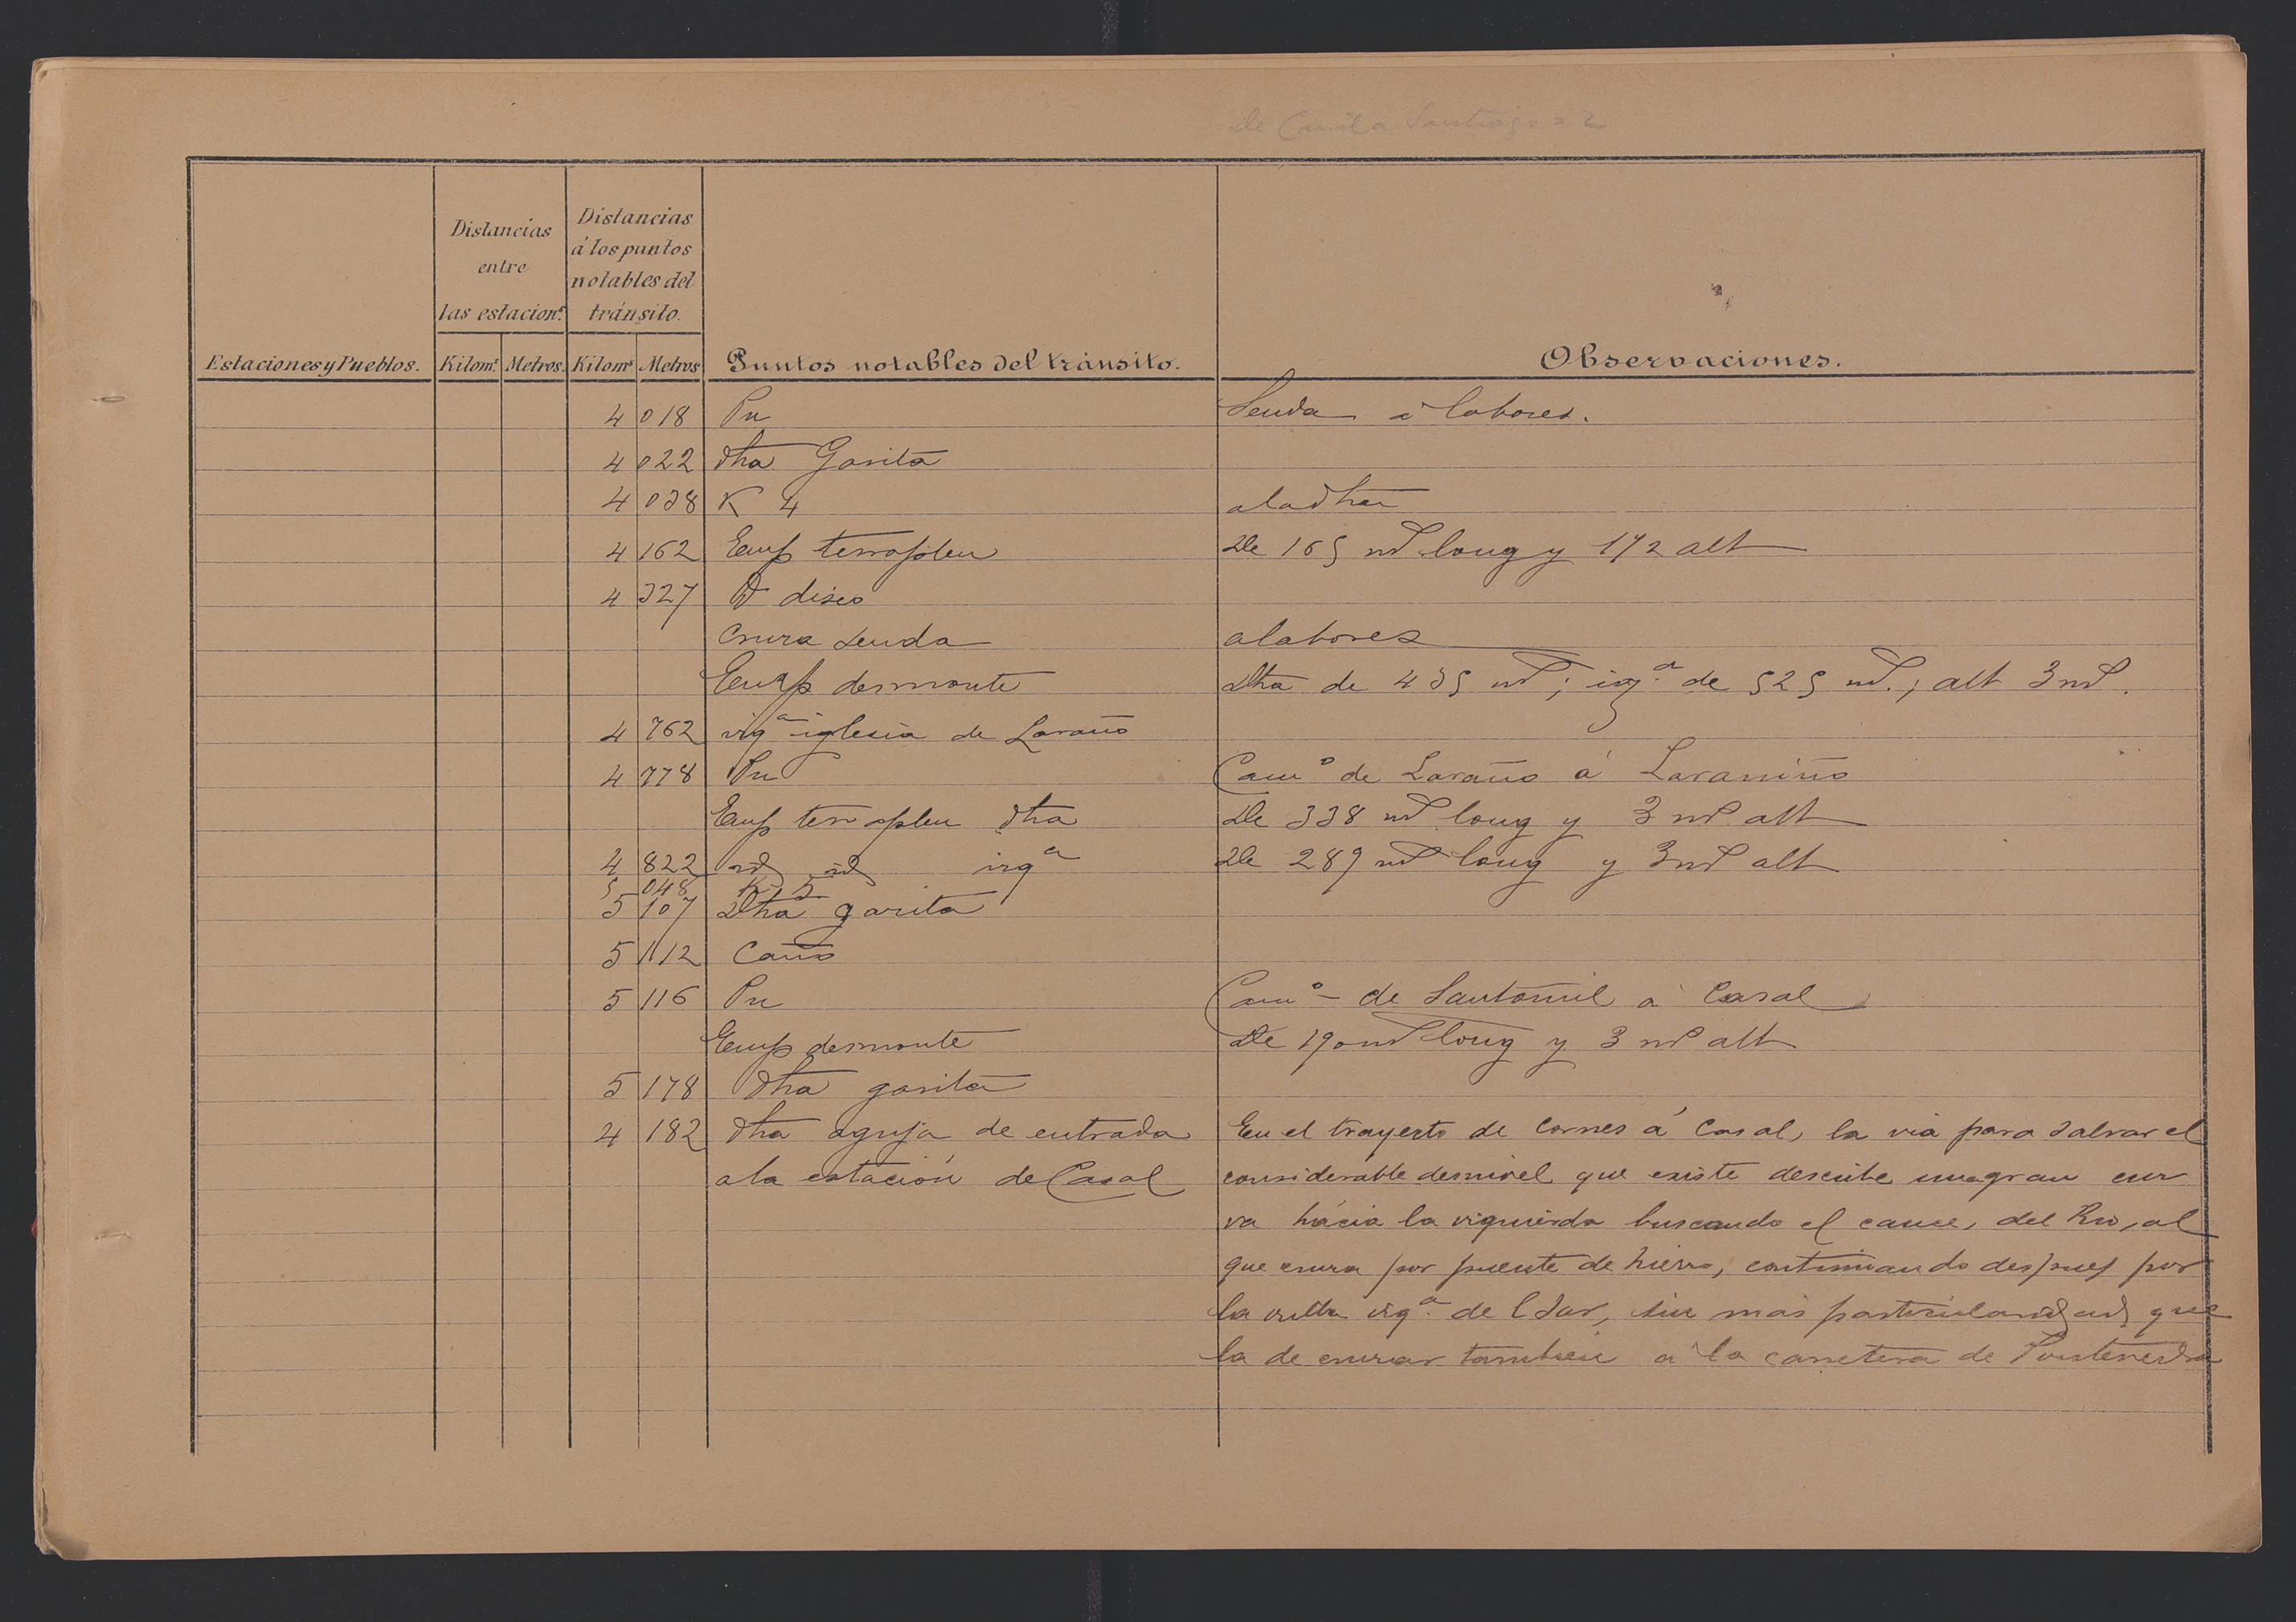 De Carril a Santiago = 2
Distancias entre las estacion.s
Distancias á los puntos notables del tránsito.
Estaciones y Pueblos. Kilom.s Metros. Kilom.s Metros Puntos notables del tránsito. Observaciones.
4 018 Pn Senda á labores.
4 022 dha Garita
4 038 K 4 a la dha
4 162 Emp terraplen De 165 m long y 1/2 alt
4 327 D disco
Cruza senda a labores
Emp desmonte Dha de 435 m; izq.a de 525 m.; alt 3 m.
4 762 izq.a iglesia de Laraño
4 778 Pn Cam.o de Laraño á Laraniño
Emp terraplen dha De 338 m long y 3 m alt
4 822 id id izq.a De 289 m long y 3 m alt
5 048 K 5
5 107 Dha garita
5 112 Caño
5 116 Pn Cam.o de Santomil a Casal
Emp desmonte De 190 m long y 3 m alt
5 178 dha garita
4 182 dha aguja de entrada En el trayecto de Cornes á Casal, la via para salvar el
a la estación de Casal considerable desnivel que existe describe una gran cur
va hácia la izquierda buscando el cauce, del Rio, al
que cruza por puente de hierro, continuando despues por
la orilla izq.a del Sar, sin más particularidad que
la de cruzar tambien a la carretera de Pontevedra